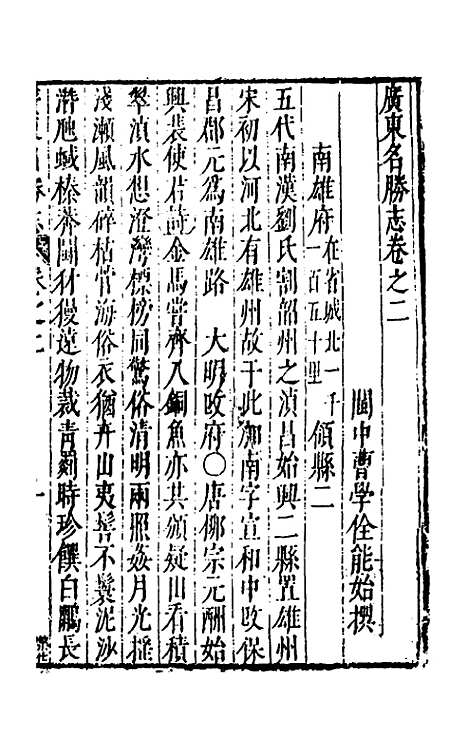 廣東名勝志卷之二
閩中曹學佺能始撰
南雄府在省城北一千一百五十里領縣二
五代南漢劉氏割韶州之湞昌始興二縣置雄州
宋初以河北有雄州故于此加南字宣和中改保
昌郡元為南雄路　大明改府○唐柳宗元酬始
興裴使君詩金馬嘗齊入銅魚亦共頒疑山看積
翠湞水想澄灣標榜同驚俗清明兩照姦月光摇
淺瀬風韻碎枯菅海俗衣猶卉山夷髻不鬟泥沙
潛虺蜮榛莽鬪豺獌遑物裁青罽時珍饌白鷴長